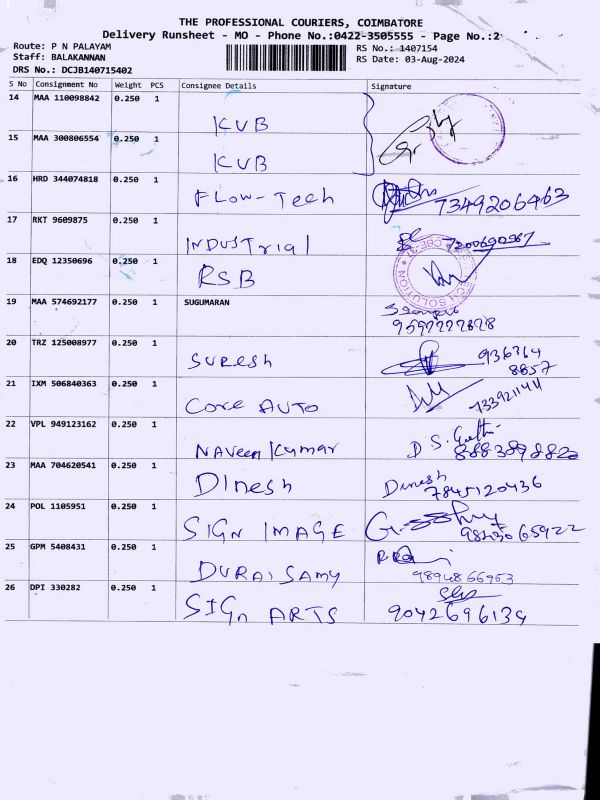 THE PROFESSIONAL COURIERS, COIMBATORE
Delivery Runsheet - MO - Phone No.:0422-3505555 - Page No.:2
Route: P N PALAYAM
RS No.: 1407154
Staff: BALAKANNAN
RS Date: 03-Aug-2024
DRS No.: DCJB140715402
S No Consignment No Weight PCS Consignee Details Signature
14 MAA 110098842 0.250 1 KVB
15 MAA 300806554 0.250 1 KVB
16 HRD 344074818 0.250 1 FLOW-Tech 7349206463
17 RKT 9609875 0.250 1 INDUSTrial
18 EDQ 12350696 0.250 1 RSB
19 MAA 574692177 0.250 1 SUGUMARAN
20 TRZ 125008977 0.250 1 SURESh 936364
8857
21 IXM 506840363 0.250 1 Core AUTO 7339211411
22 VPL 949123162 0.250 1 NAVeen Kumar D S.
23 MAA 704620541 0.250 1 DInesh Dinesh
7845120436
24 POL 1105951 0.250 1 SIGN IMAGE 9843065922
25 GPM 5408431 0.250 1 DURAISAMY 9894866963
26 DPI 330282 0.250 1 SIGn ARTS 9042696134